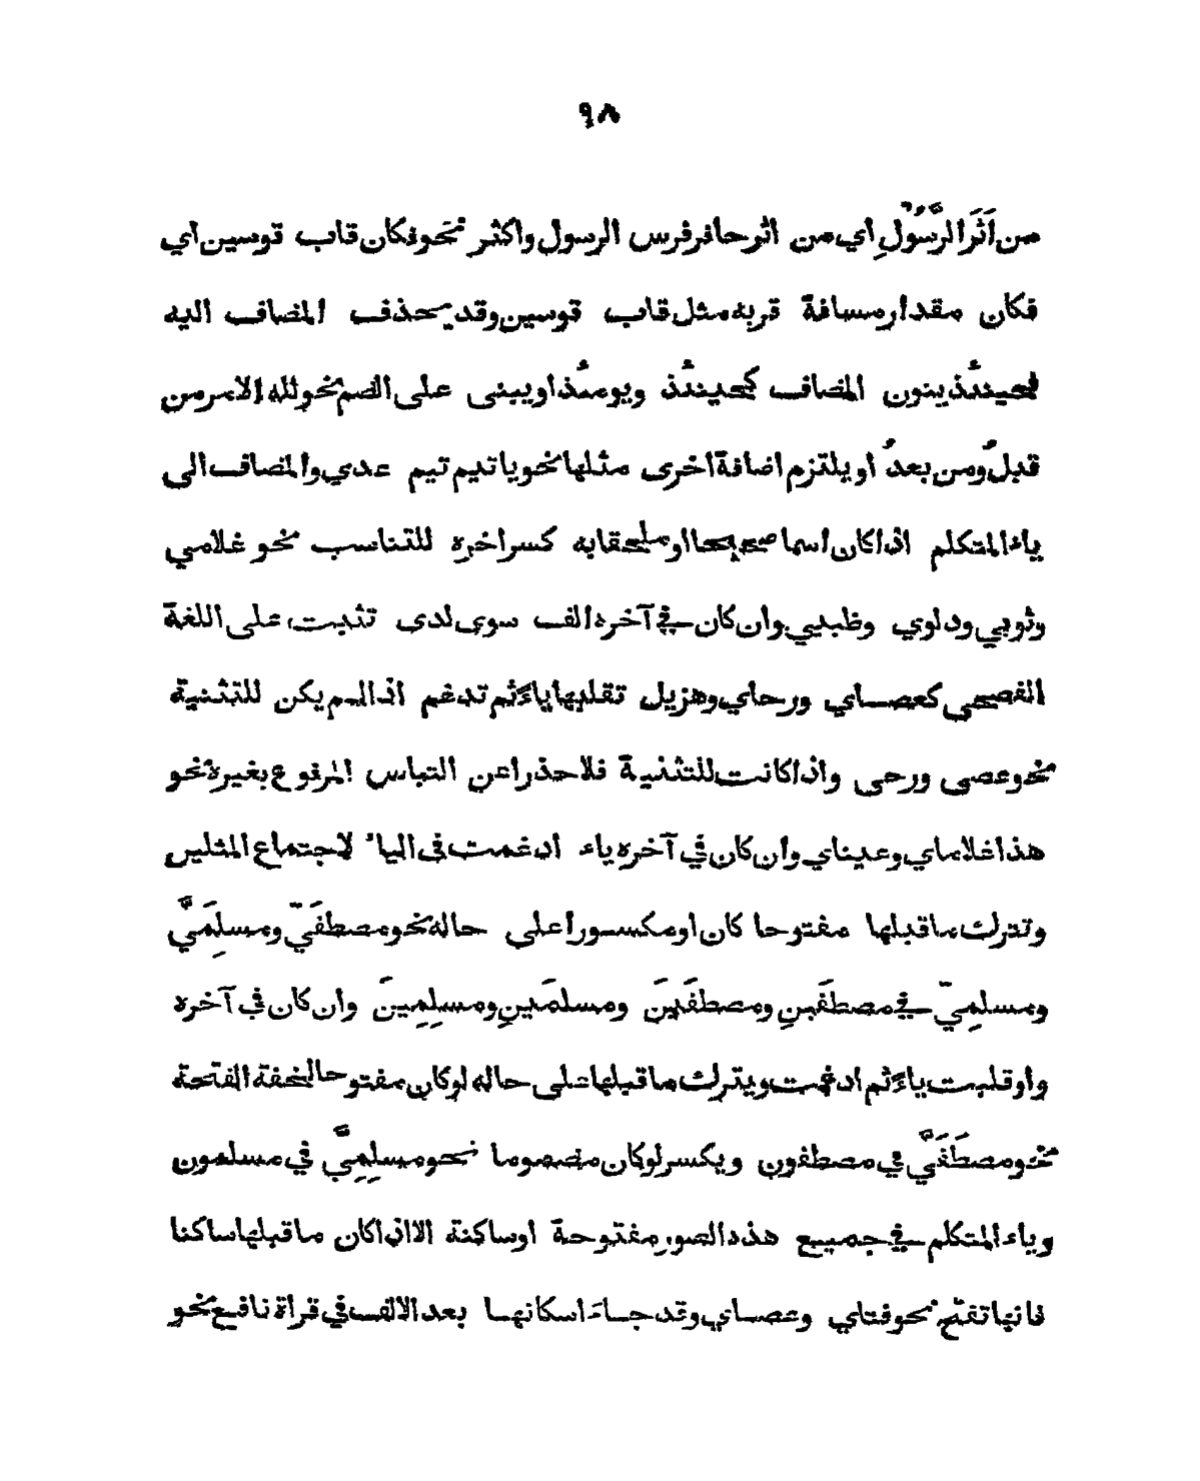 ٩٨
من اَثَرَ الرَّسُوْلِ اي من اثر حافر فرس الرسول واكثر نحو فكان قاب قوسين اي
فكان مقدار مسافة قربه مثل قاب قوسين وقد يحذف المضاف اليه
فحينئذ ينون المضاف كحينئذ ويومئذ او يبنى على الضم نحو لله الامر من
قبلُ ومن بعدُ او يلتزم اضافة اخرى مثلها نحو يا تيم تيم عدي والمضاف الى
ياء المتكلم اذا كان اسما صحيحا او ملحقا به كسر اخره للتناسب نحو غلامي
وثوبي ودلوي وظبيي وان كان في آخره الف سوى لدى تثبت على اللغة
الفصحى كعصاي ورحاي وهزيل تقلبها ياءً ثم تدغم اذا لم يكن للتثنية
نحو عصى ورحى واذا كانت للتثنية فلا حذرا عن التباس المرفوع بغيره نحو
هذا غلاماي وعيناي وان كان في آخره ياء ادغمت فى الياء لاجتماع المثلين
وتترك ما قبلها مفتوحا كان او مكسورا على حاله نحو مصطفَيّ ومسلِمَيَّ
ومسلمِيّ في مصطفَينِ ومصطفَينَ ومسلمَينِ ومسلِمِينَ وان كان في آخره
واو قلبت ياءً ثم ادغمت ويترك ما قبلها على حاله لو كان مفتوحا لخفة الفتحة
نحو مصطَفَيَّ في مصطفون ويكسر لو كان مضموما نحو مسلِمِيَّ في مسلمون
وياء المتكلم في جميع هذه الصور مفتوحة او ساكنة الا اذا كان ما قبلها ساكنا
فانها تفتح نحو فتاي وعصاي وقد جاء اسكانها بعد الالف في قراة نافع نحو